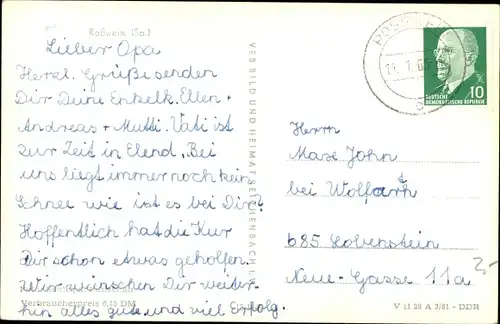 Roßwein (Sa.)
Lieber Opa
Herzl. Grüße senden
Dir Deine Enkelk. Ellen +
Andreas + Mutti. Vati ist
zur Zeit in Elend. Bei
uns liegt immer noch kein
Schnee wie ist es bei Dir?
Hoffentlich hat die Kur
Dir schon etwas geholfen.
Wir wünschen Dir weiter-
hin alles gute und viel Erfolg.
Verbraucherpreis 0,15 DM
VEB BILD UND HEIMAT REICHENBACH I. V.
10
DEUTSCHE
DEMOKRATISCHE REPUBLIK
Herrn
Max John
bei Wolfarth
685 Lobenstein
Neue-Gasse 11a
2,-
V 11 28 A 3/61 - DDR